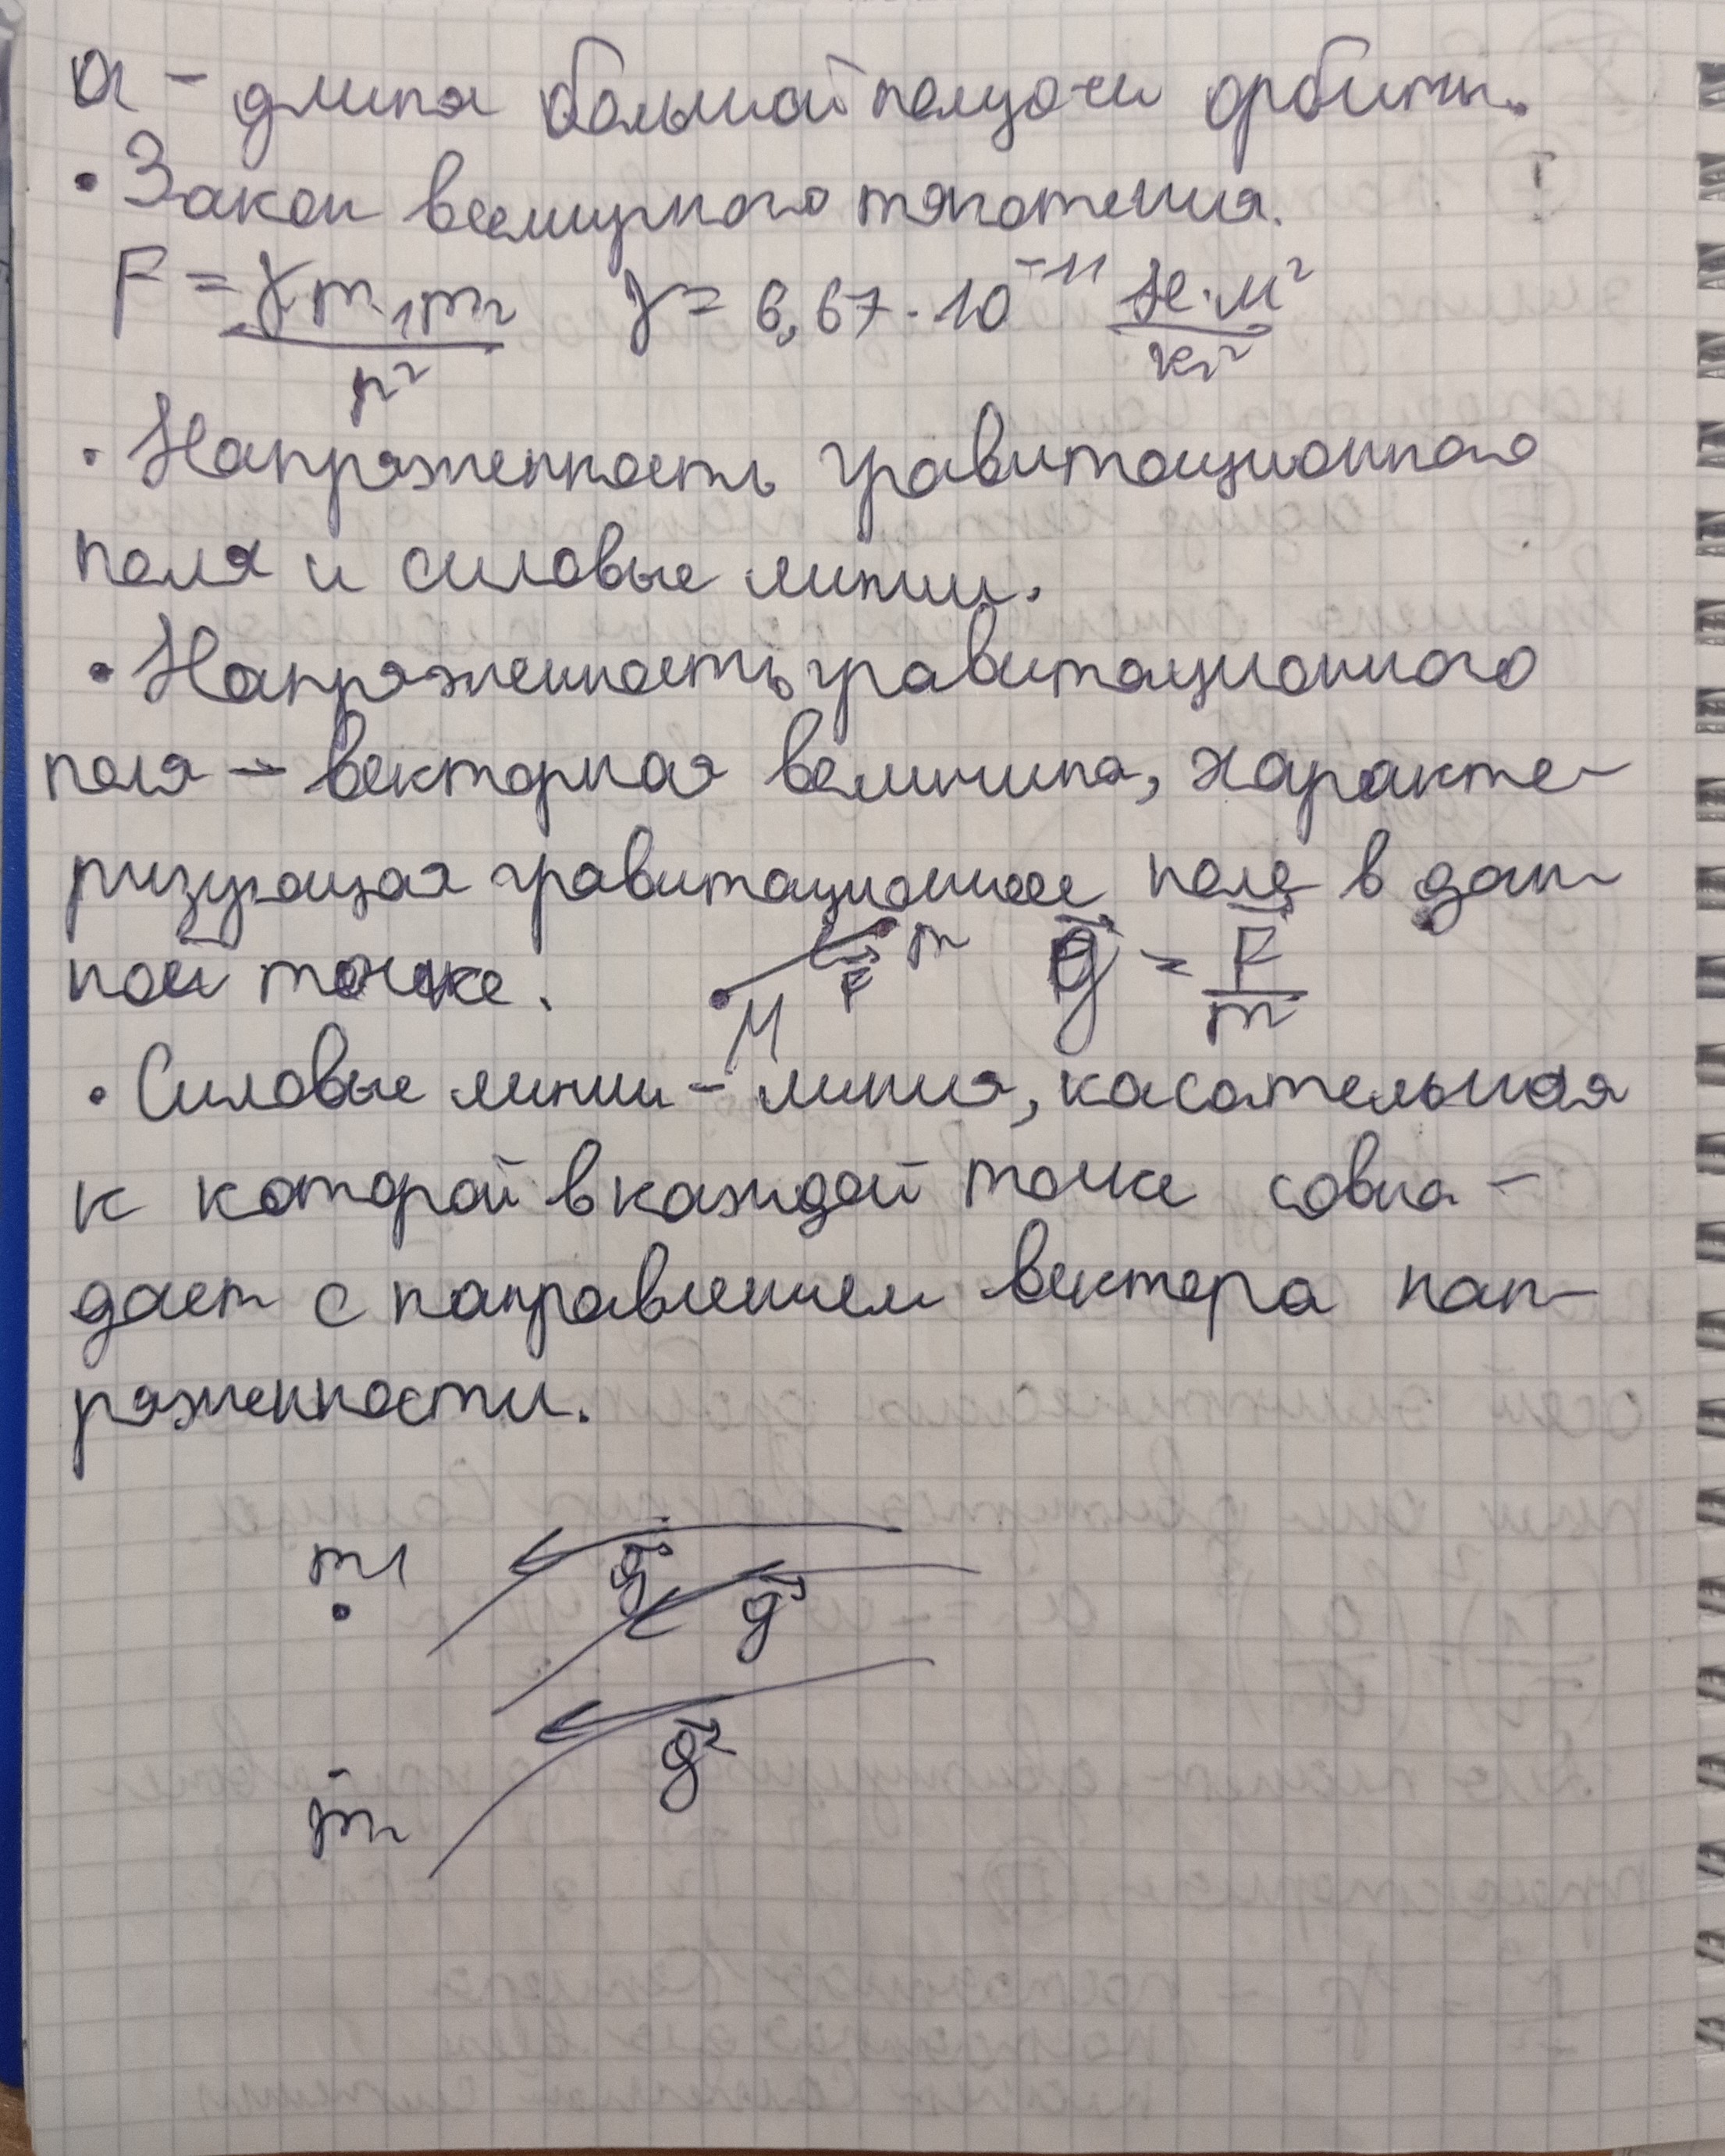 a – длина большой полуоси орбиты.
• Закон всемирного тяготения.
F = γm₁m₂ / r² γ = 6,67 · 10⁻¹¹ Н·м² / кг²
• Напряженность гравитационного
поля и силовые линии.
• Напряженность гравитационного
поля – векторная величина, характе-
ризующая гравитационное поле в дан-
ной точке. M F⃗ m g⃗ = F⃗ / m
• Силовые линии – линия, касательная
к которой в каждой точке совпа-
дает с направлением вектора нап-
ряженности.
m₁ g⃗ g⃗
m₂ g⃗